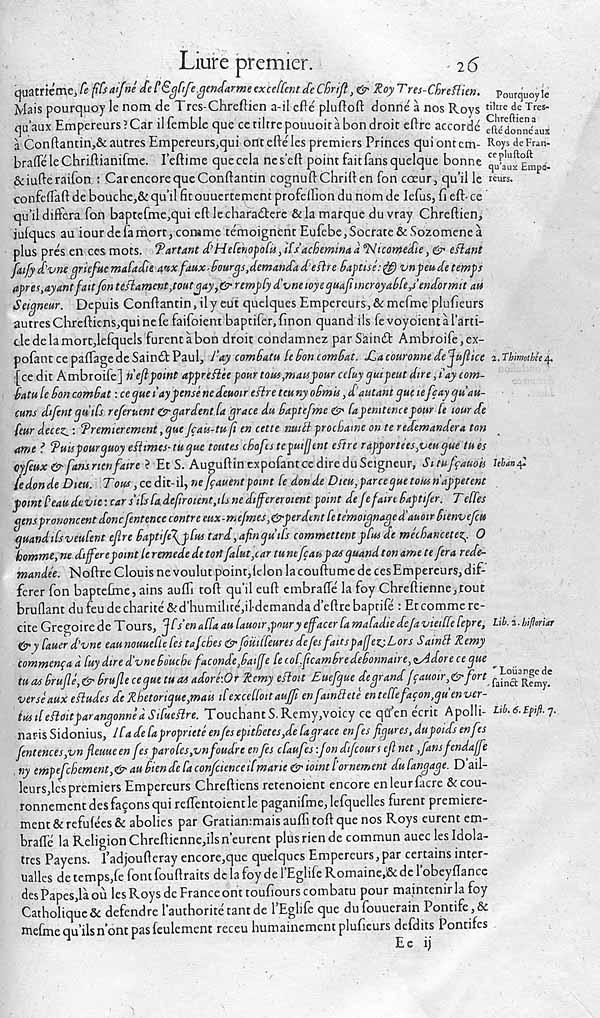 Liure premier. 26
quatriéme, le fils aisné de l'Eglise gendarme excellent de Christ, & Roy Tres-Chrestien.
Mais pourquoy le nom de Tres-Chrestien a-il esté plustost donné à nos Roys
qu'aux Empereurs? Car il semble que ce tiltre pouuoit à bon droit estre accordé
à Constantin, & autres Empereurs, qui ont esté les premiers Princes qui ont em-
brassé le Christianisme. I'estime que cela ne s'est point fait sans quelque bonne
& iuste raison: Car encore que Constantin cognust Christ en son cœur, qu'il le
confessast de bouche, & qu'il fit ouuertement profession du nom de Iesus, si est-ce
qu'il differa son baptesme, qui est le charactere & la marque du vray Chrestien,
jusques au iour de sa mort, comme témoignent Eusebe, Socrate & Sozomene à
plus prés en ces mots. Partant d'Helenopolis, il s'achemina à Nicomedie, & estant
saisy d'vne griefue maladie aux faux-bourgs, demanda d'estre baptisé: & vn peu de temps
apres, ayant fait son testament, tout gay, & remply d'vne ioye quasi incroyable, s'endormit au
Seigneur. Depuis Constantin, il y eut quelques Empereurs, & mesme plusieurs
autres Chrestiens, qui ne se faisoient baptiser, sinon quand ils se voyoient à l'arti-
cle de la mort, lesquels furent à bon droit condamnez par Sainct Ambroise, ex-
posant ce passage de Sainct Paul, I'ay combatu le bon combat. La couronne de Justice
[ce dit Ambroise] n'est point apprestée pour tous, mais pour celuy qui peut dire, i'ay com-
batu le bon combat: ce que i'ay pensé ne deuoir estre teu ny obmis, d'autant que ie sçay qu'au-
cuns disent qu'ils reseruent & gardent la grace du baptesme & la penitence pour le iour de
leur decez: Premierement, que sçais-tu si en cette nuict prochaine on te redemandera ton
ame? Puis pourquoy estimes-tu que toutes choses te puissent estre rapportées, veu que tu es
oyseux & sans rien faire? Et S. Augustin exposant ce dire du Seigneur, Si tu sçauois
le don de Dieu. Tous, ce dit-il, ne sçauent point le don de Dieu, parce que tous n'appetent
point l'eau de vie: car s'ils la desiroient, ils ne differeroient point de se faire baptiser. Telles
gens prononcent donc sentence contre eux-mesmes, & perdent le témoignage d'auoir bien vescu
quand ils veulent estre baptisez plus tard, afin qu'ils commettent plus de méchancetez. O
homme, ne differe point le remede de ton salut, car tu ne sçau pas quand ton ame te sera rede-
mandée. Nostre Clouis ne voulut point, selon la coustume de ces Empereurs, dif-
ferer son baptesme, ains aussi tost qu'il eust embrassé la foy Chrestienne, tout
bruslant du feu de charité & d'humilité, il demanda d'estre baptisé: Et comme re-
cite Gregoire de Tours, Il s'en alla au lauoir, pour y effacer la maladie de sa vieille lepre,
& y lauer d'vne eau nouuelle les tasches & soüilleures de ses faits passez: Lors Sainct Remy
commença à luy dire d'vne bouche faconde, baisse le col sicambre debonnaire, Adore ce que
tu as bruslé, & brusle ce que tu as adoré: Or Remy estoit Euesque de grand sçauoir, & fort
versé aux estudes de Rhetorique, mais il excelloit aussi en saincteté en telle façon, qu'en ver-
tus il estoit parangonné à Siluestre. Touchant S. Remy, voicy ce qu'en écrit Apolli-
naris Sidonius, Il a de la proprieté en ses epithetes, de la grace en ses figures, du poids en ses
sentences, vn fleuue en ses paroles, vn foudre en ses clauses: son discours est net, sans fendasse
ny empeschement, & au bien de la conscience il marie & ioint l'ornement du langage. D'ail-
leurs, les premiers Empereurs Chrestiens retenoient encore en leur sacre & cou-
ronnement des façons qui ressentoient le paganisme, lesquelles furent premiere-
ment & refusées & abolies par Gratian: mais aussi tost que nos Roys eurent em-
brassé la Religion Chrestienne, ils n'eurent plus rien de commun auec les Idola-
tres Payens. I'adjousteray encore, que quelques Empereurs, par certains inter-
ualles de temps, se sont soustraits de la foy de l'Eglise Romaine, & de l'obeyssance
des Papes, là où les Roys de France ont tousiours combatu pour maintenir la foy
Catholique & defendre l'authorité tant de l'Eglise que du souuerain Pontife, &
mesme qu'ils n'ont pas seulement receu humainement plusieurs desdits Pontifes
Ee ij
Pourquoy le
tiltre de Tres-
Chrestien a
esté donné aux
Roys de Fran-
ce plustost
qu'aux Empe-
reurs.
2. Thimothée 4.
Iehan 4.
Lib. 2. historiar
Loüange de
sainct Remy.
Lib. 6. Epist. 7.